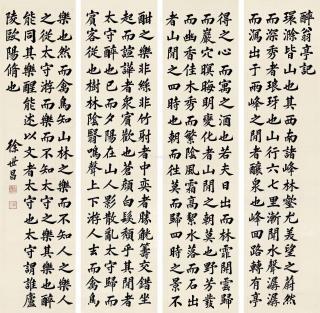 醉翁亭記
環滁皆山也其西南諸峰林壑尤美望之蔚然
而深秀者琅琊也山行六七里漸聞水聲潺潺
而瀉出于兩峰之間者釀泉也峰回路轉有亭
得之心而寓之酒也若夫日出而林霏開雲歸
而巖穴暝晦明變化者山間之朝莫也野芳發
而幽香佳木秀而繁陰風霜高絜水落而石出
者山間之四時也朝而往莫而歸四時之景不
酣之樂非絲非竹射者中弈者勝觥籌交錯坐
起而諠譁者衆賓歡也蒼顏白髮頹乎其間者
太守醉也已而夕陽在山人影散亂太守歸而
賓客從也樹林陰翳鳴聲上下游人去而禽鳥
樂也然而禽鳥知山林之樂而不知人之樂人
之從太守游而樂而不知太守之樂其樂也醉
能同其樂醒能述以文者太守也太守謂誰廬
陵歐陽脩也
徐世昌